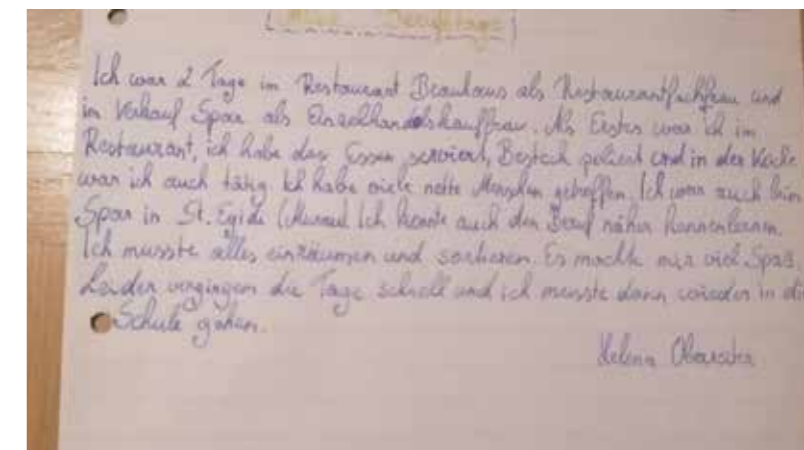 Ich war 2 Tage im Restaurant Brauhaus als Restaurantfachfrau und
im Verkauf Spar als Einzelhandelskauffrau. Als Erstes war ich im
Restaurant, ich habe das Essen serviert, Besteck poliert und in der Küche
war ich auch tätig. Ich habe viele nette Menschen getroffen. Ich war auch beim
Spar in St. Egidi Ich konnte auch den Beruf näher kennenlernen.
Ich musste alles einräumen und sortieren. Es machte mir viel Spaß.
Leider vergingen die Tage schnell und ich musste dann wieder in di
Schule gehen.
Helena